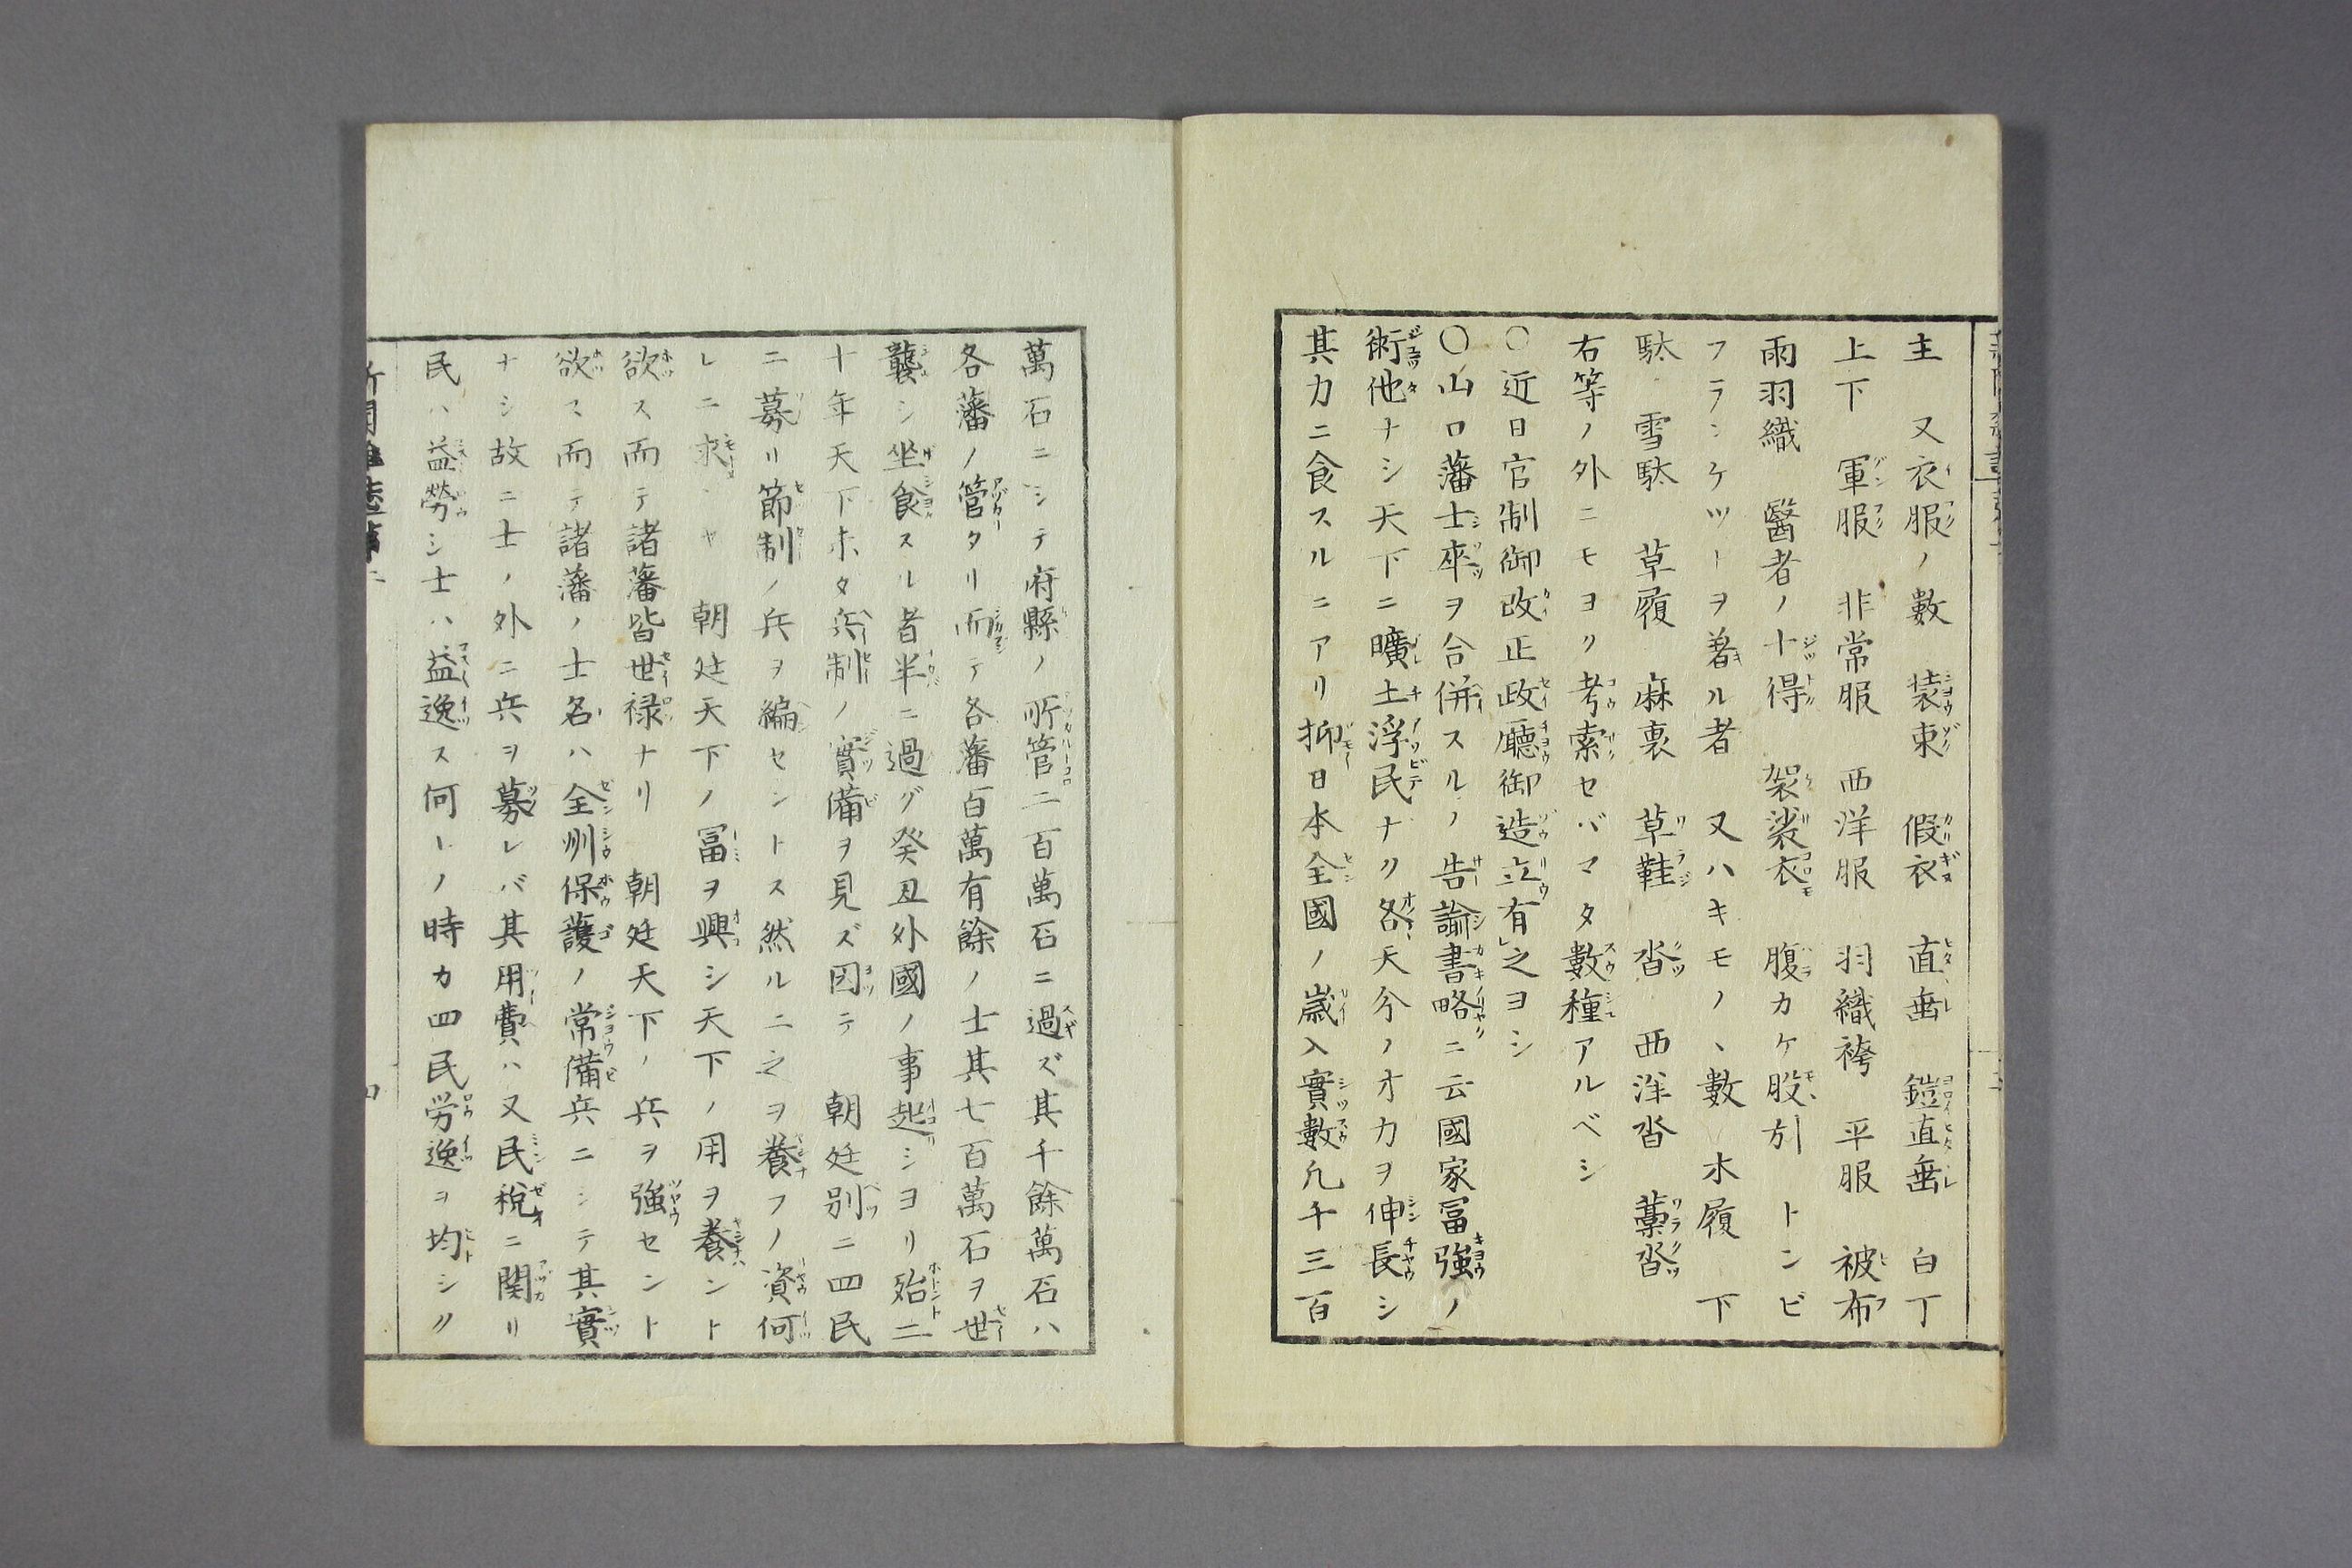 主 又衣服ノ數 装束 假衣 直垂 鎧直垂 白丁
上下 軍服 非常服 西洋服 羽織袴 平服 被布
雨羽織 醫者ノ十得 袈裟衣 腹カケ股引 トンビ
フランケットヲ着ル者 又ハキモノヽ數 木履 下
駄 雪駄 草履 麻裏 草鞋 沓 西洋沓 藁沓
右等ノ外ニモヨク考索セバマタ數種アルベシ
〇近日官制御改正政廳御造立有之ヨシ
〇山口藩士卒ヲ合併スルノ告諭書略ニ云國家冨強ノ
術他ナシ天下ニ曠土浮民ナク各天分ノオカヲ伸長シ
其力ニ食スルニアリ抑日本全國ノ歳入實數凡千三百
萬石ニシテ府縣ノ所管二百萬石ニ過ズ其千餘萬石ハ
各藩ノ管タリ而テ各藩百萬有餘ノ士其七百萬石ヲ世
襲シ坐食スル者半ニ過グ癸丑外國ノ事起シヨリ殆二
十年天下未タ兵制ノ實備ヲ見ズ因テ 朝廷別ニ四民
ニ募リ節制ノ兵ヲ編センドス然ルニ之ヲ養フノ資何
レニ求ンヤ 朝廷天下ノ冨ヲ興シ天下ノ用ヲ養ント
欲ス而テ諸藩皆世禄ナリ 朝廷天下ノ兵ヲ強セント
欲ス而テ諸藩ノ士名ハ全州保護ノ常備兵ニシテ其實
ナシ故ニ士ノ外ニ兵ヲ募レバ其用費ハ又民税ニ関リ
民ハ益勞シ士ハ益逸ス何レノ時カ四民労逸ヲ均シク